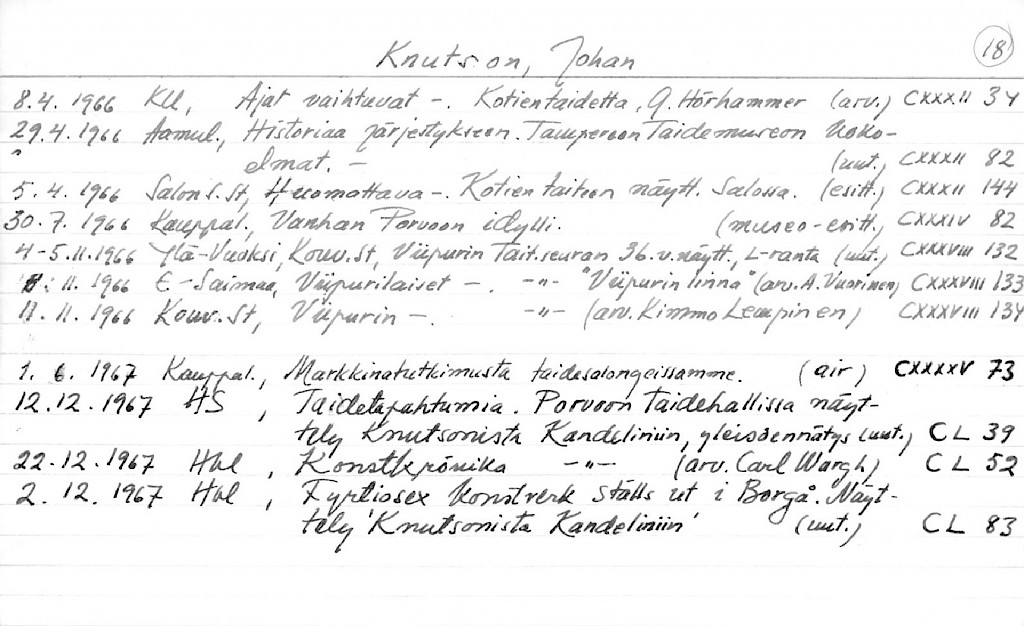 Knutson, Johan
18
8.4. 1966 KU, Ajat vaihtuvat –. Kotien taidetta, G. Hörhammer (arv.) CXXXII 34
29.4. 1966 Aamul., Historiaa järjestykseen. Tampereen Taidemuseon koko-
" elmat. – (uut.) CXXXII 82
5. 4. 1966 Salon S. St, Huomattava –. Kotien taiteen näytt. Salossa. (esitt.) CXXXII 144
30. 7. 1966 Kauppal., Vanhan Porvoon idylli. (museo-esitt.) CXXXIV 82
4-5.11.1966 Ylä-Vuoksi, Kouv.St, Viipurin Tait.seuran 36.v.näytt., L-ranta (uut.) CXXXVIII 132
11. 1966 E-Saimaa, Viipurilaiset –. -"- "Viipurin linna" (arv. A. Vuorinen) CXXXVIII 133
11. 11. 1966 Kouv. St, Viipurin –. -"- (arv. Kimmo Lempinen) CXXXVIII 134
1. 6. 1967 Kauppal., Markkinatutkimusta taidesalongeissamme. (air) CXXXXV 73
12.12.1967 HS, Taidetapahtumia. Porvoon Taidehallissa näyt-
tely Knutsonista Kandeliniin, yleisöennätys (uut.) CL 39
22.12.1967 Hbl, Konstkrönika -"- (arv. Carl Wargh) CL 52
2. 12. 1967 Hbl, Fyrtiosex konstverk ställs ut i Borgå. Näyt-
tely 'Knutsonista Kandeliniin' (uut.) CL 83